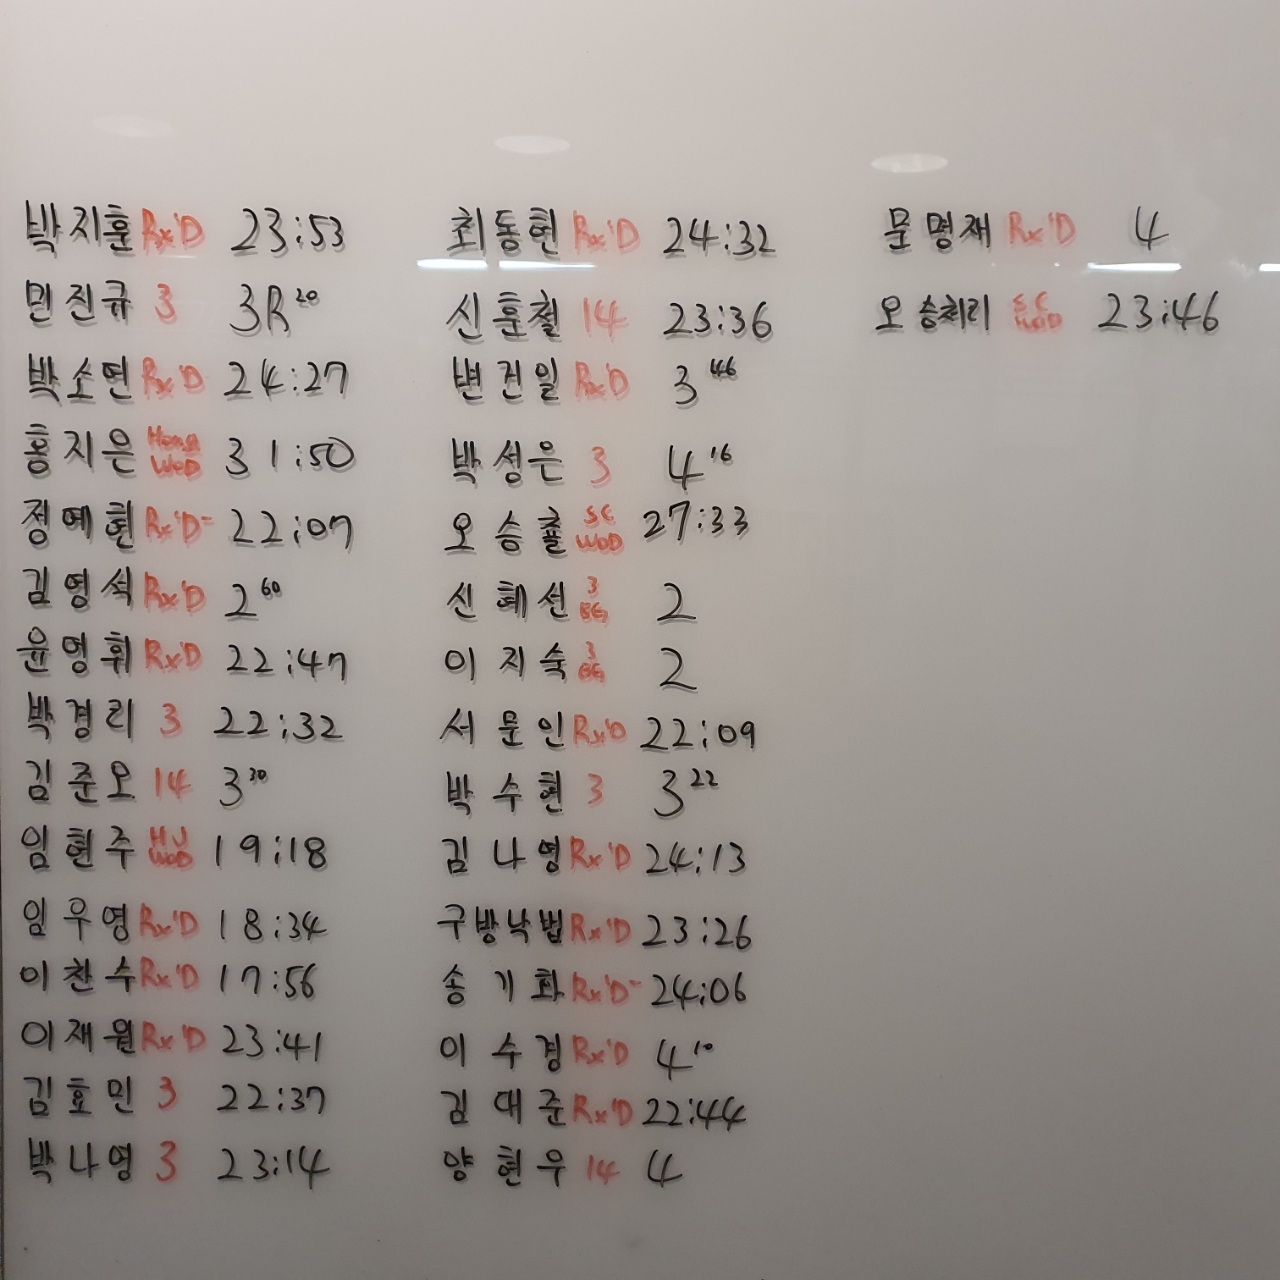 박지훈 Rx'D 23:53
민진규 3 3R 20
박소연 Rx'D 24:27
홍지은 Hong WOD 31:50
정예현 Rx'D- 22:07
김영석 Rx'D 2 60
윤영휘 RxD 22:47
박경리 3 22:32
김준오 14 3 30
임현주 HJ WOD 19:18
임우영 Rx'D 18:34
이찬수 Rx'D 17:56
이재원 Rx'D 23:41
김효민 3 22:37
박나영 3 23:14
최동현 Rx'D 24:32
신훈철 14 23:36
변건일 Rx'D 3 46
박성은 3 4 16
오승훌 SC WOD 27:33
신혜선 3 BG 2
이지숙 3 BG 2
서문인 Rx'D 22:09
박수현 3 3 22
김나영 Rx'D 24:13
구방낙법 Rx'D 23:26
송기화 Rx'D- 24:06
이수경 Rx'D 4 10
김대준 Rx'D 22:44
양현우 14 4
문명재 Rx'D 4
오승처리 SC WOD 23:46